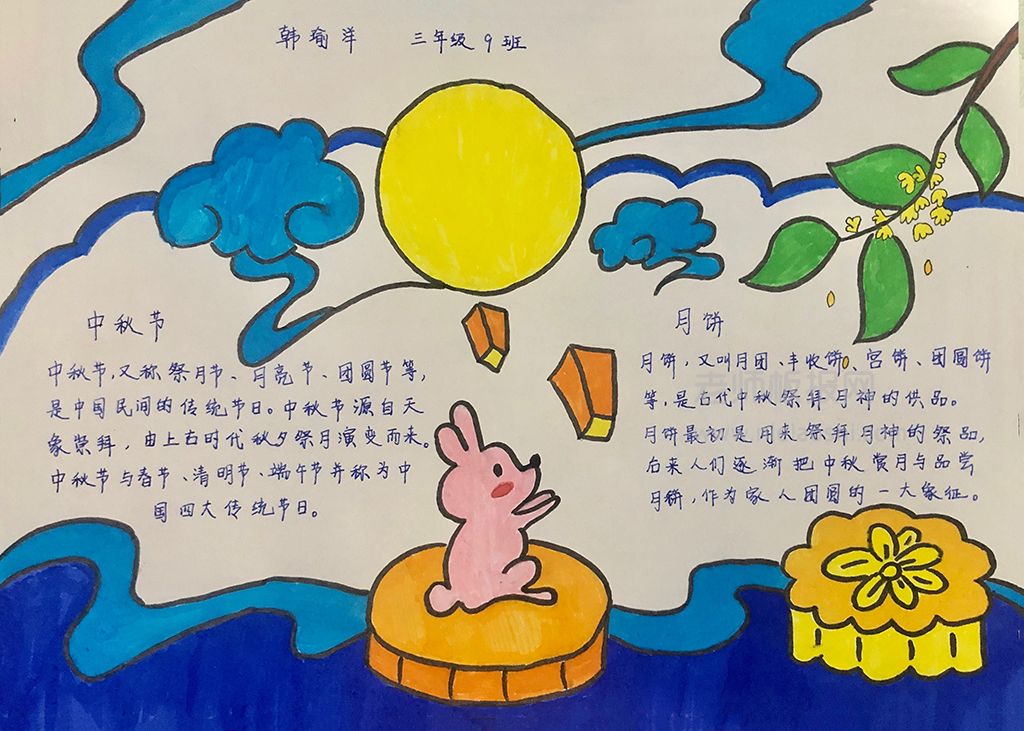 韩瑜洋 三年级9班
中秋节
中秋节,又称祭月节、月亮节、团圆节等,
是中国民间的传统节日。中秋节源自天
象崇拜,由上古时代秋夕祭月演变而来。
中秋节与春节、清明节、端午节并称为中
国四大传统节日。
月饼
月饼,又叫月团、丰收饼、宫饼、团圆饼
等,是古代中秋祭拜月神的供品。
月饼最初是用来祭拜月神的祭品,
后来人们逐渐把中秋赏月与品尝
月饼,作为家人团圆的一大象征。
老师板报网